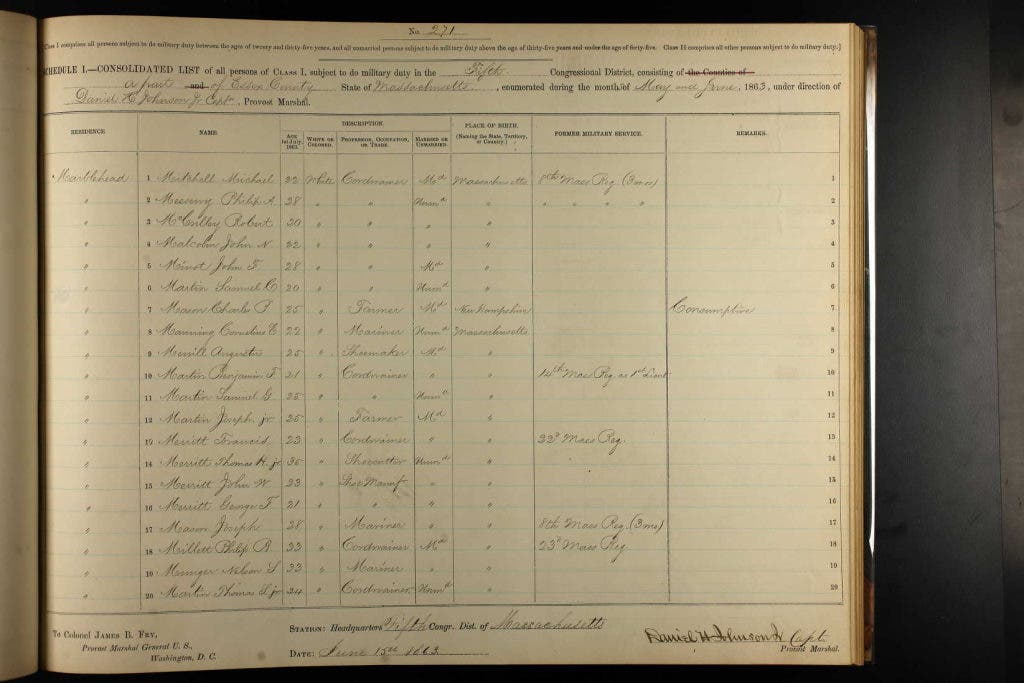 No. 271
[Class I comprises all persons subject to do military duty between the ages of twenty and thirty-five years, and all unmarried persons subject to do military duty above the age of thirty-five years and under the age of forty-five. Class II comprises all other persons subject to do military duty.]
SCHEDULE I.—CONSOLIDATED LIST of all persons of CLASS I, subject to do military duty in the Fifth Congressional District, consisting of the Counties of
a part and of Essex County State of Massachusetts, enumerated during the month of May and June, 1863, under direction of
Daniel H. Johnson Jr Capt., Provost Marshal.
RESIDENCE. NAME. DESCRIPTION. PLACE OF BIRTH. (Naming the State, Territory, or Country.) FORMER MILITARY SERVICE. REMARKS.
AGE 1st July, 1863. WHITE OR COLORED. PROFESSION, OCCUPATION, OR TRADE. MARRIED OR UNMARRIED.
Marblehead 1 Mitchell Michael 22 White Cordwainer Md Massachusetts 8th Mass Reg (3 mos) 1
" 2 Messervy Philip A 28 " " Unmd " " " " " 2
" 3 Robert 20 " " " " 3
" 4 Malcolm John N 22 " " " " 4
" 5 Minot John F 28 " " Md " 5
" 6 Martin Samuel C 20 " " Unmd " 6
" 7 Mason Charles P 25 " Farmer Md New Hampshire Consumptive 7
" 8 Manning Cornelius E 22 " Mariner Unmd Massachusetts 8
" 9 Merrill Augustus 25 " Shoemaker Md " 9
" 10 Martin Benjamin F 21 " Cordwainer " " 14th Mass Reg as 1st Lieut 10
" 11 Martin Samuel G 25 " " Unmd " 11
" 12 Martin Joseph jr 25 " Farmer Md " 12
" 13 Merritt Francis 23 " Cordwainer " " 23d Mass Reg. 13
" 14 Merritt Thomas H. jr 35 " Shoecutter Unmd " 14
" 15 Merritt John W 33 " Shoe Manuf " " 15
" 16 Merritt George F. 21 " " " " 16
" 17 Mason Joseph 28 " Mariner " " 8th Mass Reg. (3 mos) 17
" 18 Millett Philip B 33 " Cordwainer Md " 23d Mass Reg. 18
" 19 Munger Nelson S 33 " Mariner " " 19
" 20 Martin Thomas S. jr 24 " Cordwainer Unmd " 20
To Colonel JAMES B. FRY,
Provost Marshal General U. S.,
Washington, D. C.
STATION: Headquarters Fifth Congr. Dist. of Massachusetts
DATE: June 15th 1863
Daniel H Johnson Jr Capt
Provost Marshal.